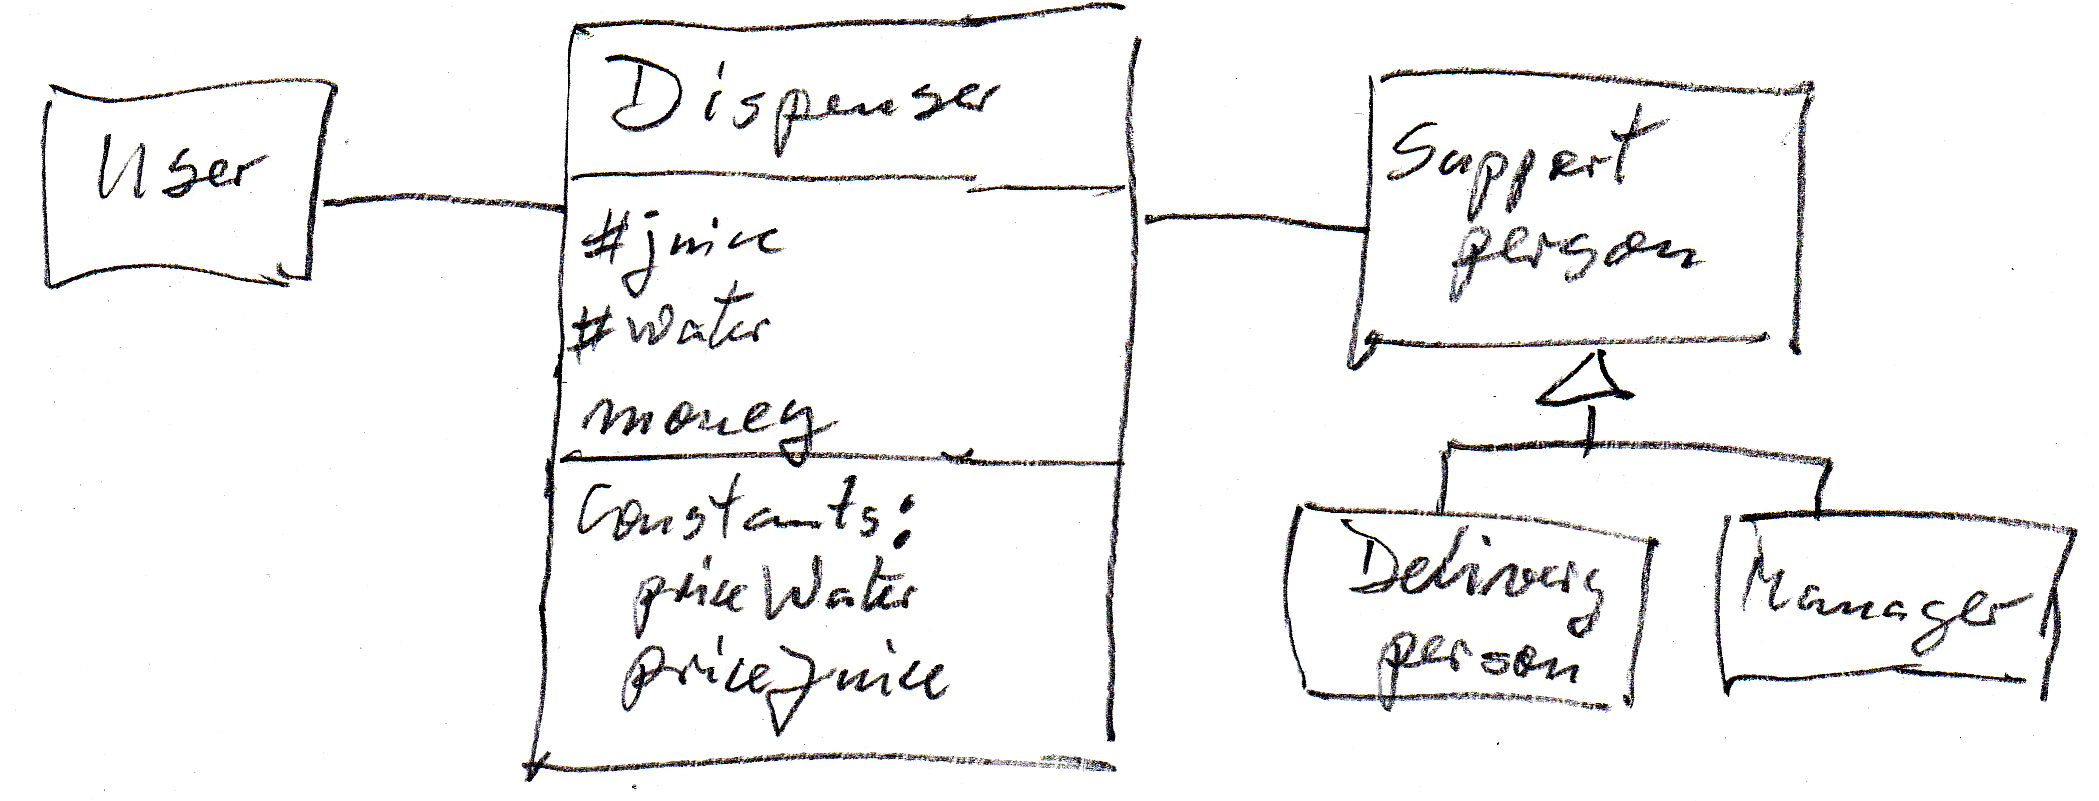 User
Dispenser
#juice
#water
money
Constants:
priceWater
priceJuice
Support
person
Delivery
person
Manager